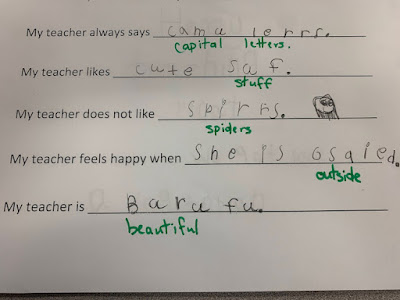 My teacher always says cama lerrs.
capital letters.
My teacher likes cute saf.
stuff
My teacher does not like spirrs.
spiders
My teacher feels happy when She is osaied.
outside
My teacher is Barufu.
beautiful